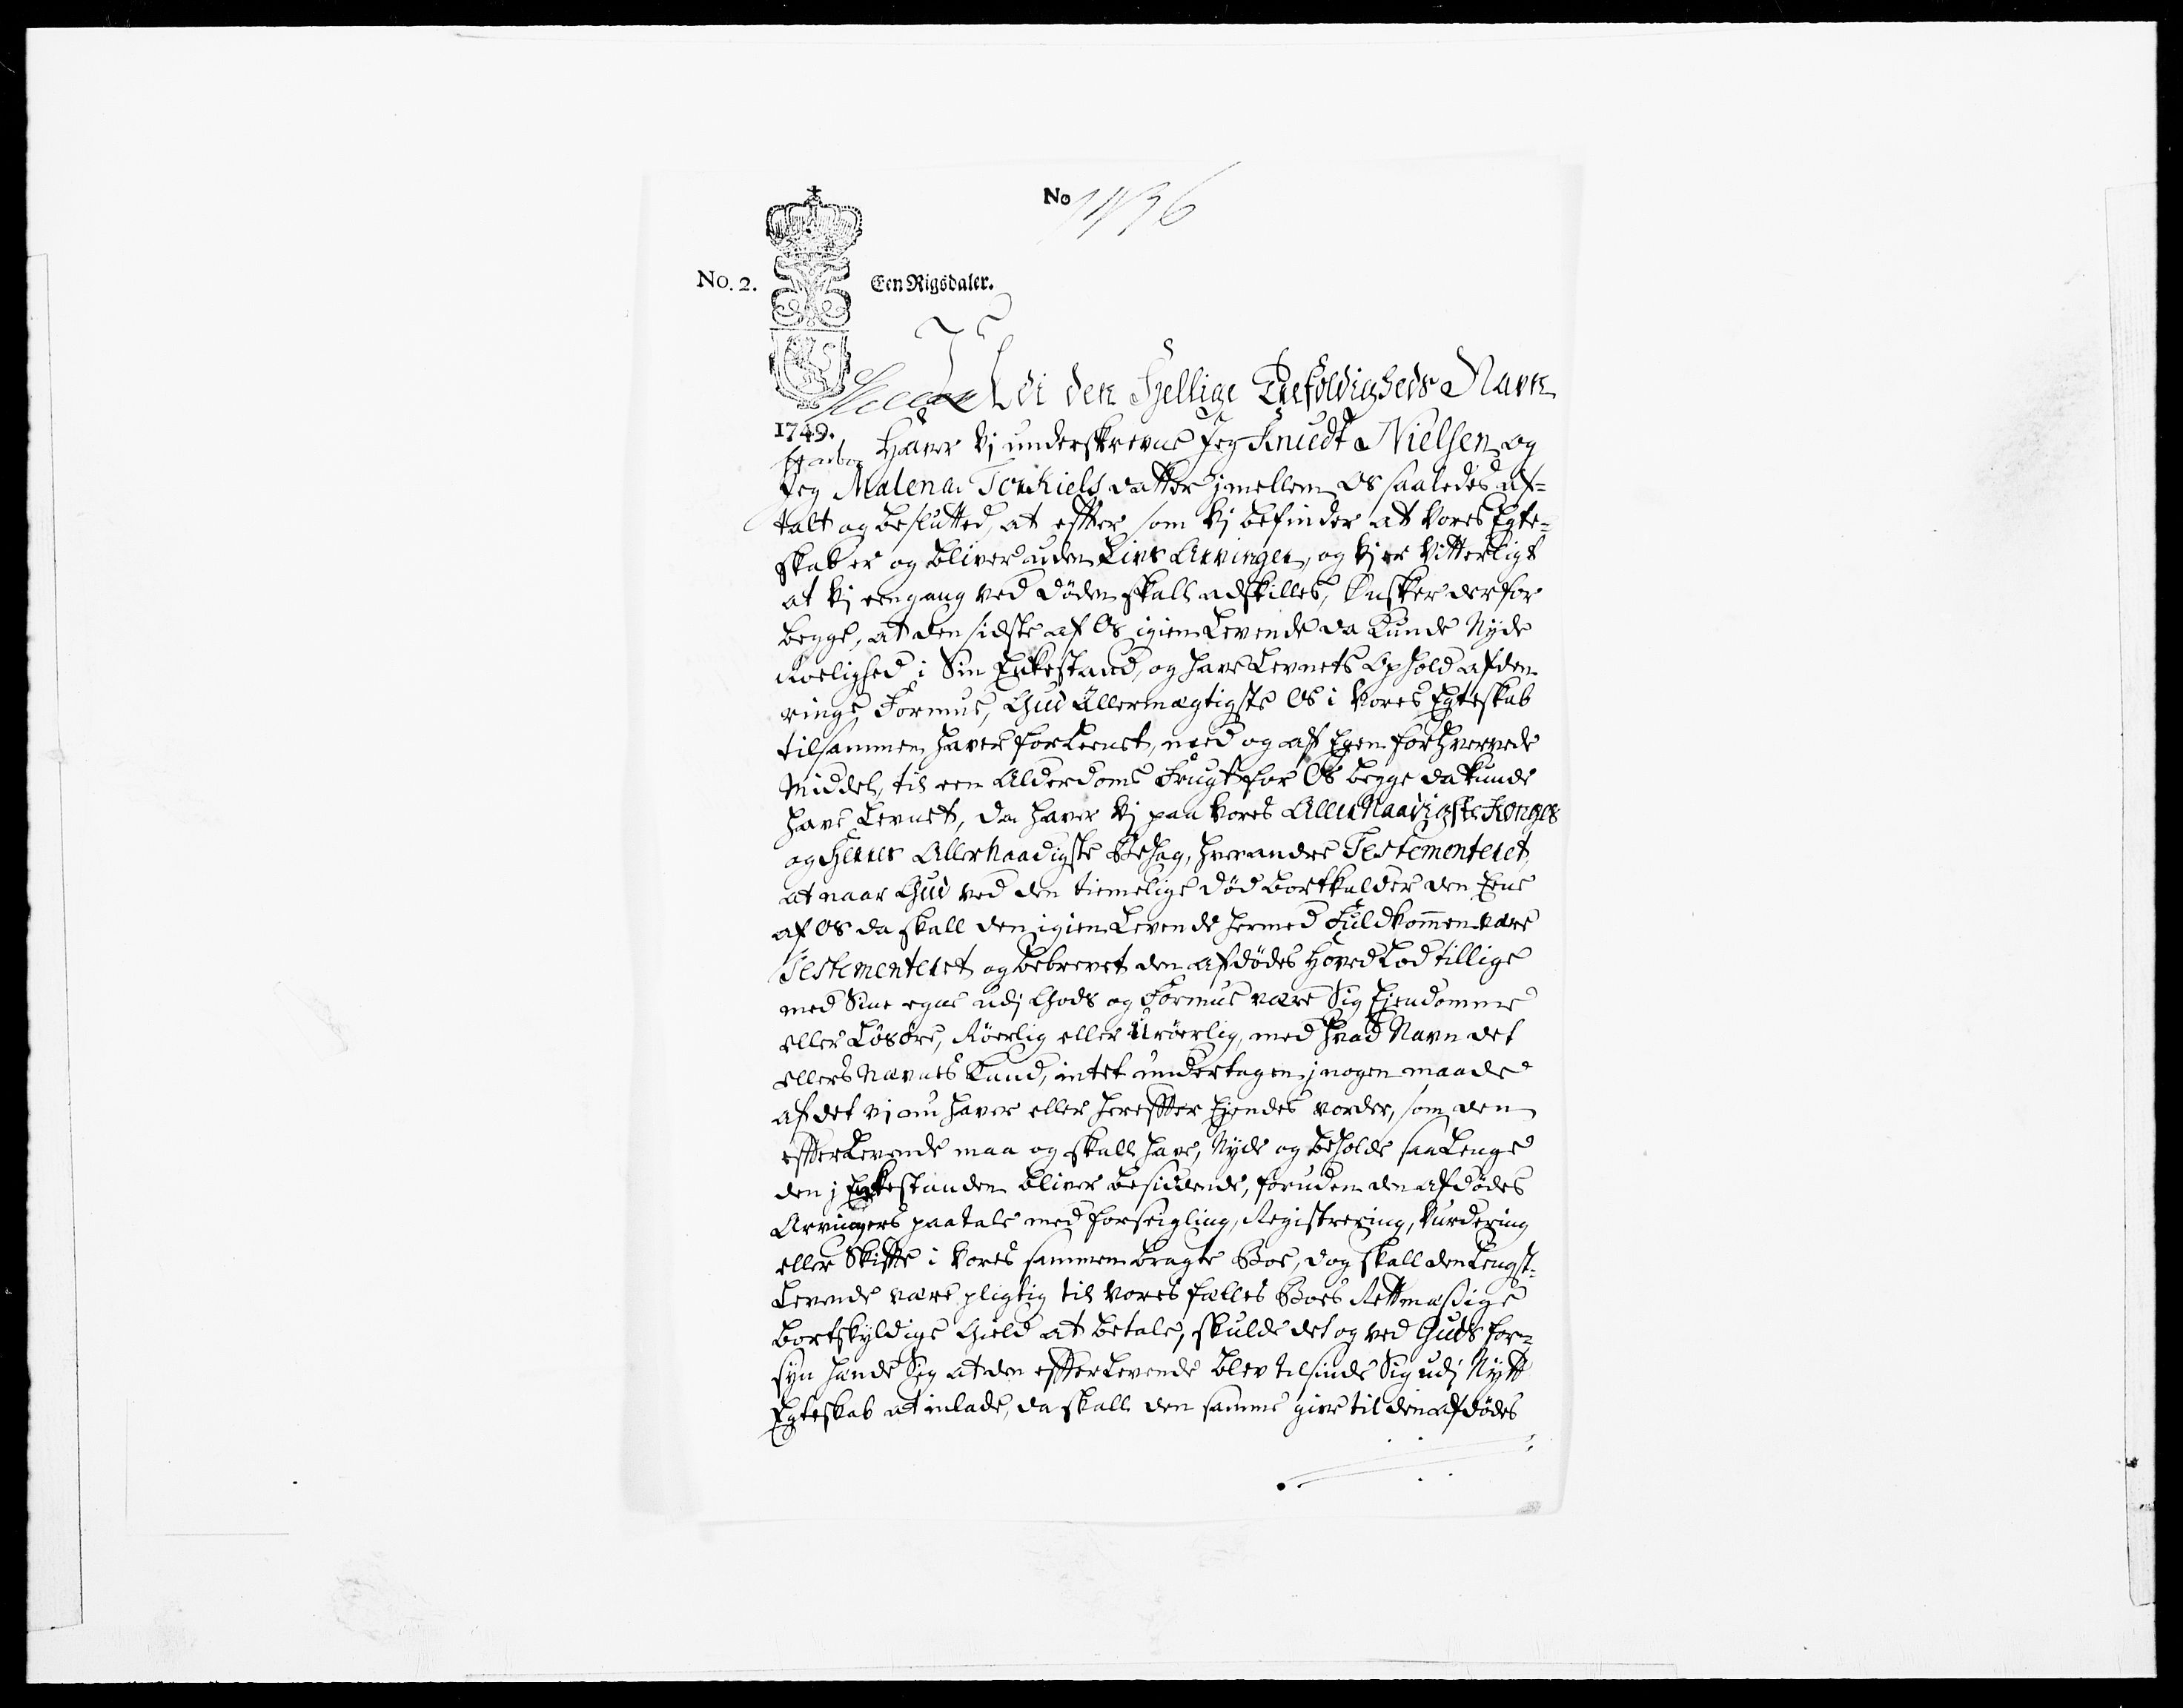 No 1436
No. 2.
Een Rigsdaler.
Udi den Hellige Trefoldigheds Navn
1749.
Haver Vj underskrevne Jeg Knudt Nielsen og
Jeg Malena Torkiels datter jmellem Os saaledes af-
talt og beslutted, at effter som Vj befinder at Vores Egte-
skab er og bliver uden Livs Arvinger, og Vj er Vitterligt
at Vj eengang ved Døden skall adskilles, Ønsker derfor
begge, at den sidste af Os igien Levende da Kunde Nyde
Roelighed i Sin Enkestand, og have Levnets Ophold af den
ringe Formue, Gud Allermægtigste Os i Vores Egteskab
tilsammen haver forleenet, med og af Egen forhvervede
Middel, til een Alderdoms Frugt for Os begge da kunde
have Levnet, da haver Vj paa Vores Allernaadigste Konges
og Herres Allernaadigste Behag, hverandre Testementeret,
at naar Gud ved den timelige død bortkalder den Eene
af Os da skall den igien Levende hermed Fuldkommen være
Testementeret og bebrevet den afdødes Hoved Lod tillige
med Sine egne udj Gods og Formue være Sig Ejendomme
eller Løsøre, Røerlig eller Urøerlig, med hvad Navn det
ellers Nævnes Kand, intet undertagen j nogen maade
af det vj nu haver eller hereffter Ejendes vorder, som den
effterlevende maa og skall have, Nyde og beholde saa Lenge
den j Enkestanden bliver besiddende, foruden den afdødes
Arvingers paatale med forseigling, Registrering, Vurdering
eller Skiffte i Vores sammenbragte Boe, dog skall den Lengst-
Levende være pligtig til Vores fælles Boes Rettmæssige
bortskyldige Gield at betale, skulde det og ved Guds for-
syn hænde Sig at den effterlevende blev tilsinde Sig udj Nytt
Egteskab at inlade, da skall den samme give til den afdødes